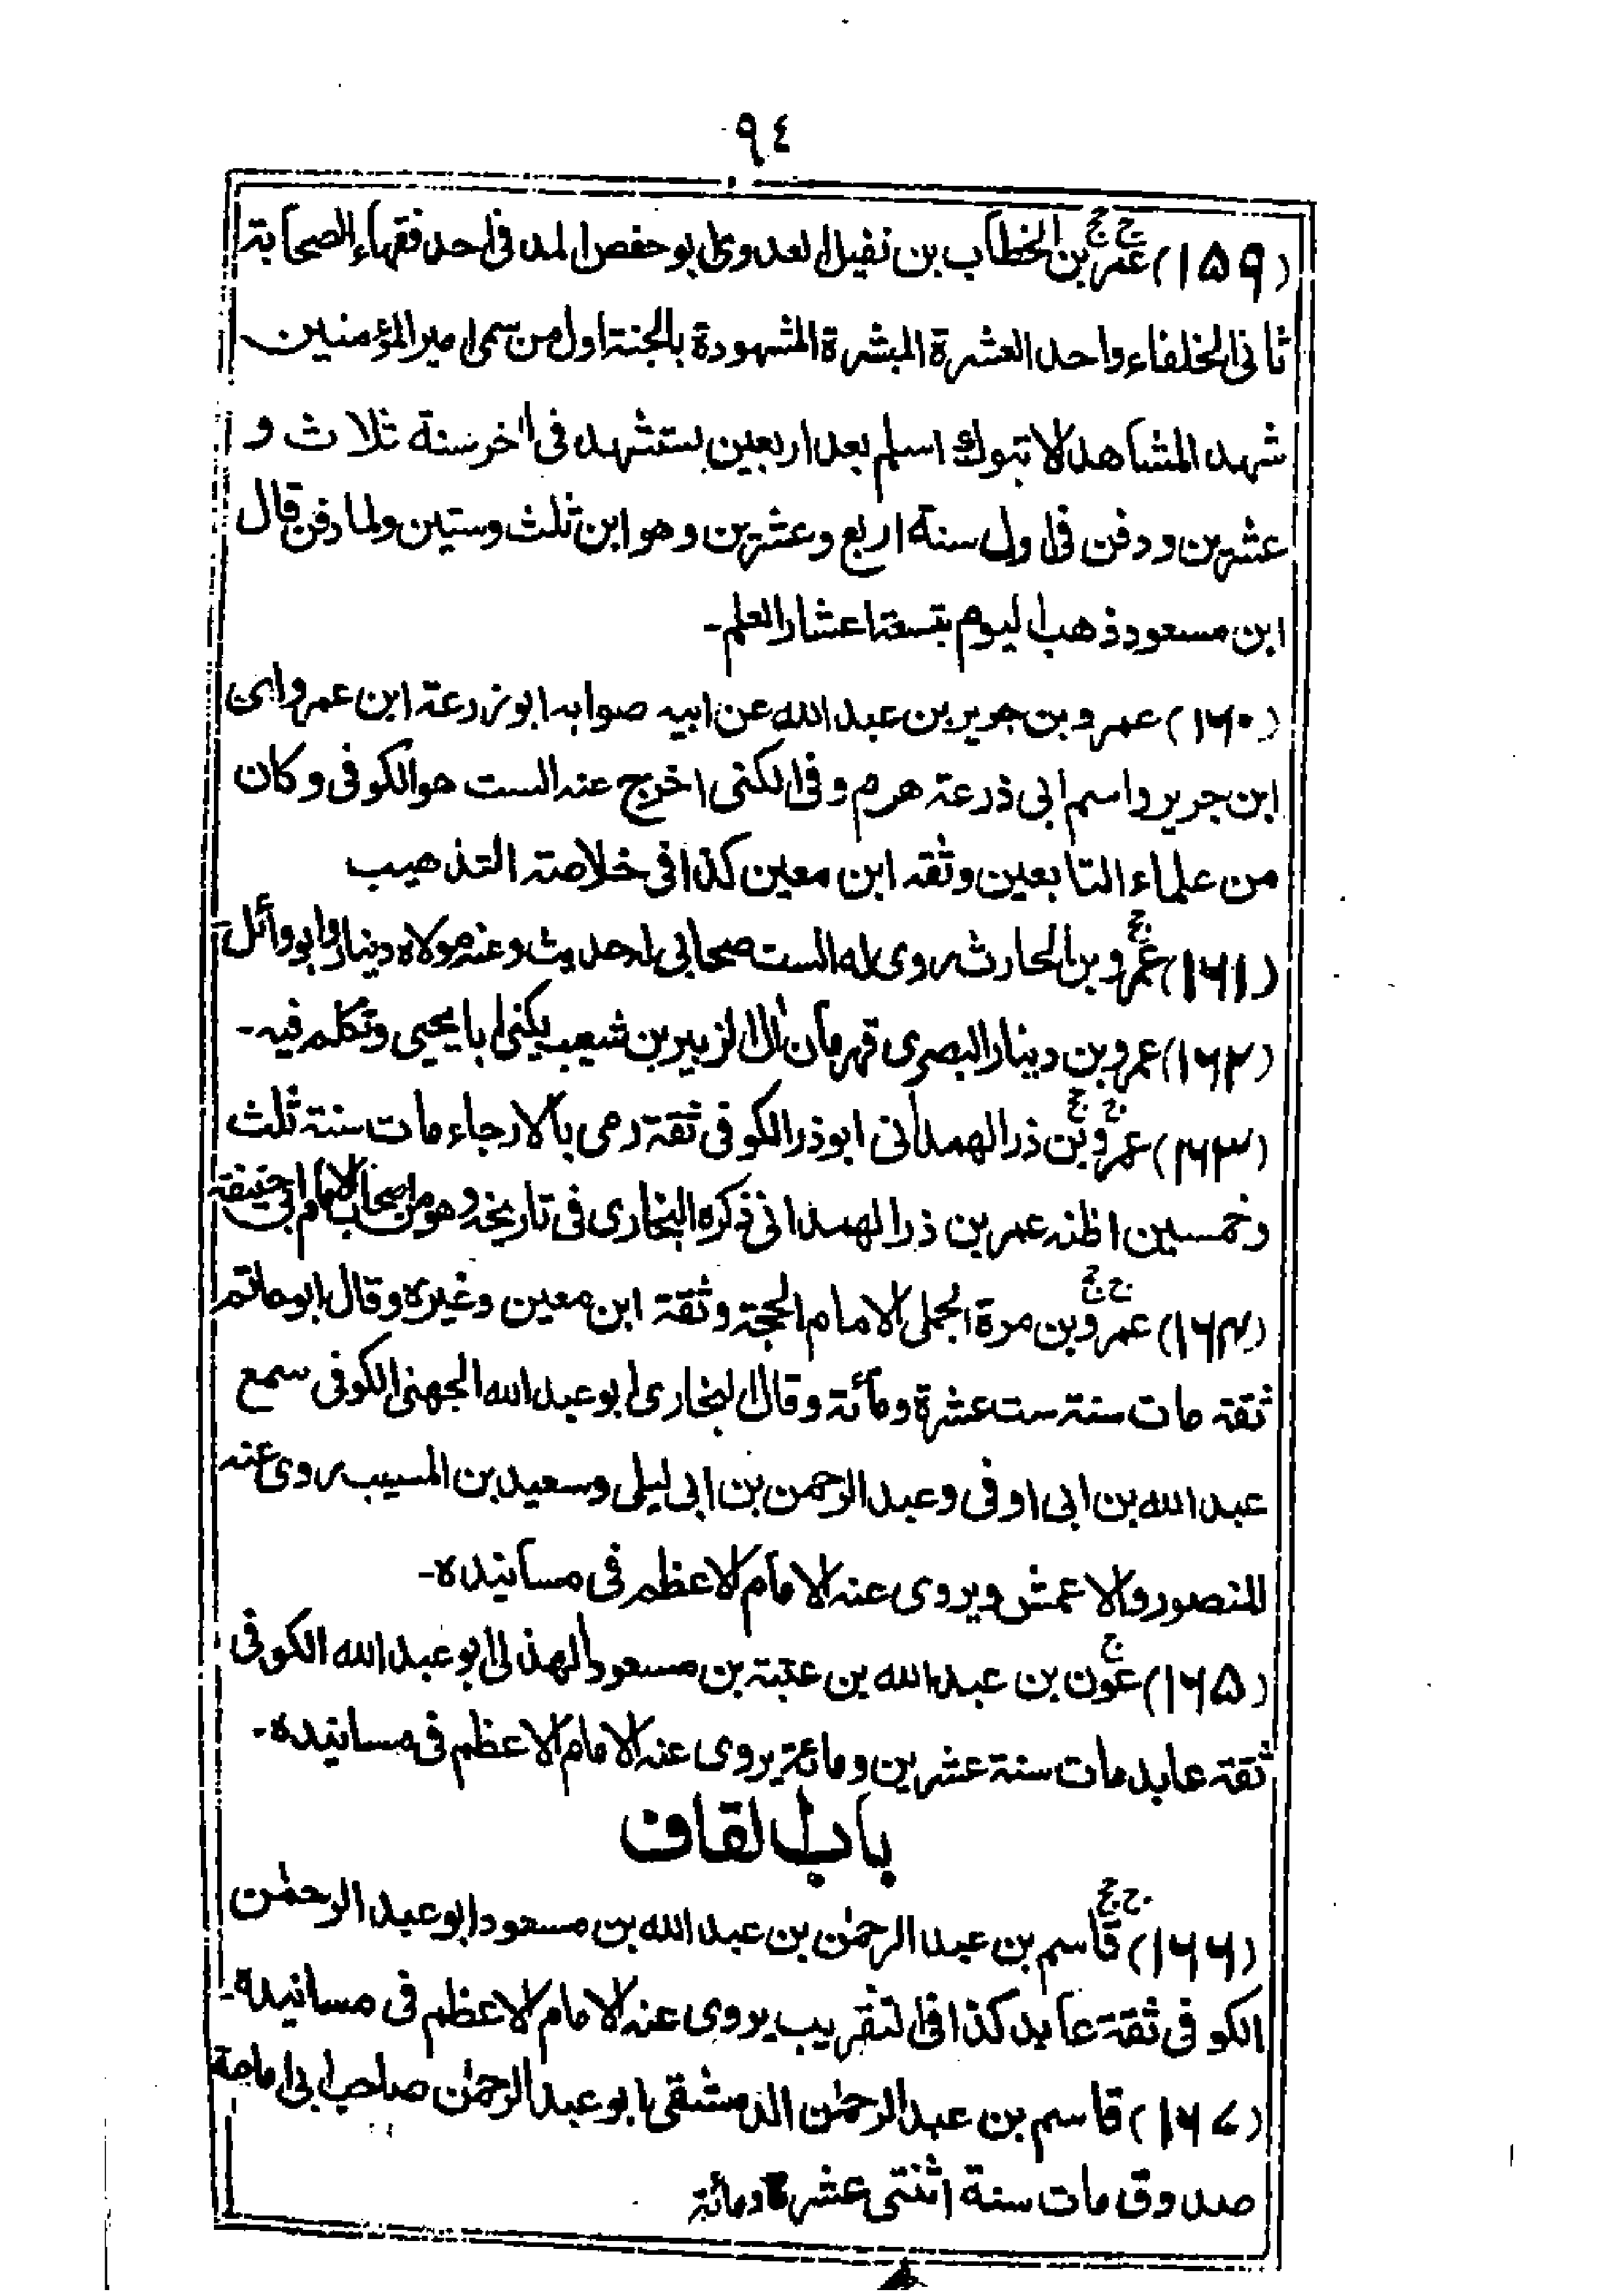 ٩٤
(١٥٩) عمر بن الخطاب بن نفيل العدوى ابو حفص المدنى احد فقهاء الصحابة
ثانى الخلفاء واحد العشرة المبشرة المشهودة بالجنة اول من سمى امير المؤمنين
شهد المشاهد الا تبوك اسلم بعد اربعين يستشهد فى اٰخر سنة ثلاث و
عشرين ودفن فى اول سنة اربع وعشرين وهو ابن ثلث وستين ولما دفن قال
ابن مسعود ذهب اليوم بتسعة اعشار العلم-
(١٦٠) عمرو بن جرير بن عبد الله عن ابيه صوابه ابو زرعة ابن عمرو اى
ابن جرير واسم ابى ذرعة هرم وفى الكنى اخرج عنه الست هو الكوفى وكان
من علماء التابعين وثقه ابن معين كذا فى خلاصته التذهيب
(١٦١) عمرو بن الحارث روى له الست صحابى له حديث وعنه مولاه دينار وابو وائل
(١٦٢) عمرو بن دينار البصرى قهرمان اٰل الزبير بن شعيب يكنى ابا يحيى وتكلم فيه-
(١٦٣) عمرو بن ذر الهمدانى ابو ذر الكوفى ثقة رمى بالارجاء مات سنة ثلث
وخمسين اظنه عمر بن ذر الهمدانى ذكره البخارى فى تاريخه وهو من اصحاب الامام ابى حنيفة
(١٦٤) عمرو بن مرة الجملى الامام الحجة وثقة ابن معين وغيره وقال ابو حاتم
ثقة مات سنة ست عشرة ومائة وقال البخارى ابو عبد الله الجهنى الكوفى سمع
عبد الله بن ابى اوفى وعبد الرحمن بن ابى ليلى وسعيد بن المسيب روى عنه
المنصور والاعمش ويروى عنه الامام الاعظم فى مسانيده-
(١٦٥) عون بن عبد الله بن عتبة بن مسعود الهذلى ابو عبد الله الكوفى
ثقة عابد مات سنة عشرين ومائة يروى عنه الامام الاعظم فى مسانيده-
باب القاف
(١٦٦) قاسم بن عبد الرحمٰن بن عبد الله بن مسعود ابو عبد الرحمٰن
الكوفى ثقة عابد كذا فى التقريب يروى عنه الامام الاعظم فى مسانيدة-
(١٦٧) قاسم بن عبد الرحمٰن الدمشقى ابو عبد الرحمٰن صاحب ابى امامة
صدوق مات سنة اثنتى عشرة ومائة